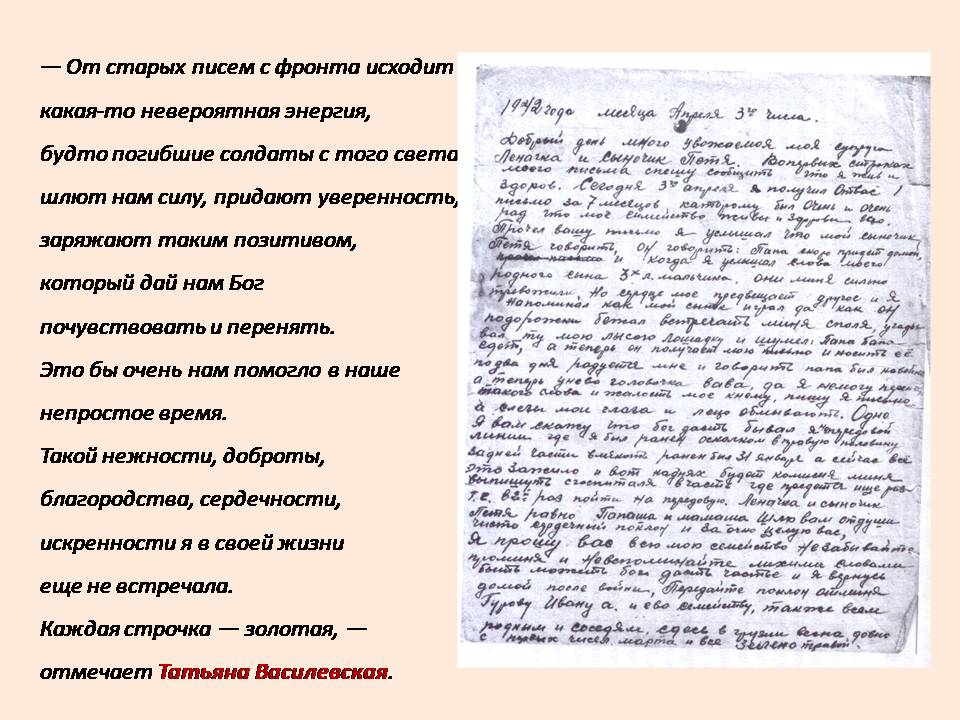 — От старых писем с фронта исходит
какая-то невероятная энергия,
будто погибшие солдаты с того света
шлют нам силу, придают уверенность,
заряжают таким позитивом,
который дай нам Бог
почувствовать и перенять.
Это бы очень нам помогло в наше
непростое время.
Такой нежности, доброты,
благородства, сердечности,
искренности я в своей жизни
еще не встречала.
Каждая строчка — золотая, —
отмечает Татьяна Василевская.
1942 года месяца Апреля 3го числа.
Добрый день много уважаемоя моя супруга
Леначка и сыночик Петя. Вопервых строках
моего письма спешу сообщить что я жив и
здоров. Сегодня 3го апреля я получил Отвас 1
письмо за 7 месяцев, катрому был Очень и очень
рад что моё семейство живы и здоровы
Прочел вашу письмо я услышал что мой сыночик
Петя говорить, он говорить: Папа скоро придет домой,
и когда я услышал слова моего
родного сына 3х л. мальчика. они миня сильно
Но сердце мое предвещает другое и я
Напоминал как мой сынок играл да как он
подорожки бежал встречать миня споля,
вал ту мою лысого лошадку и шумел: Папа папа
едет, а теперь он получает мою письмо и носить её
подва дня радуется мне и говорить папа был
а теперь унево головочка вава, да я немогу
такого слова и жалость мое кнему, пишу я письмо
а слезы мои глаза и лецо обмывають. Одно
Я вам скажу что бог дасть бывал я
линии где я был ранен осколком вправую половину
задней части вмякоть ранен был 31 января а сейчас всё
это зажило и вот наднях будет комисия миня
выпишуть сгоспиталя вчасть где придется ище раз
т.е. в 2й раз пойти на передовую. Леначка и сыночик
Петя равно Папаша и мамаша Шлю вам отдуши
чисто сердечный поклон и заочно целую вас,
Я прошу вас всю мою семейство Незабывайте
проминя и Невспоминайте лихими словами
быть можеть бог дасть часьте и я вернусь
домой после войни, Передайте поклон отминя
Гурову Ивану а. и ево семейству, также всем
родным и соседям, сдесь в грузии весна давно
с первых чисел. марта и все